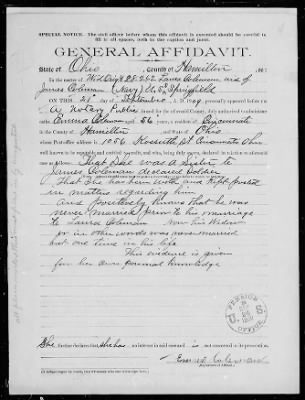 SPECIAL NOTICE. The civil officer before whom this affidavit is executed should be careful to
fill in all spaces, both in the caption and jurat.
GENERAL AFFIDAVIT.
State of Ohio, County of Hamilton, ss:
In the matter of Wid Orig Coleman wid of
James Coleman (Navy) U.S.S. Springfield
ON THIS 21 day of September, A. D. personally appeared before me
a Notary Public in and for the aforesaid County, duly authorized to administer
Emma Coleman aged 56 years, a resident of Cincinnati
in the County of Hamilton and State of Ohio
whose Post-office address is 1056 Kossuth St Cincinnati Ohio
That She was a Sister to
James Coleman deceased Soldier
That She has been with and kept posted
in matters regarding him
And positively knows that he was
never married prior to his marriage
to Coleman now his widow
or in other words was never married
but one time in his life
This evidence is given
for her own personal knowledge
PENSION
OFFICE
U S
She further declares that she has no interest in said case and is not concerned in its prosecution.